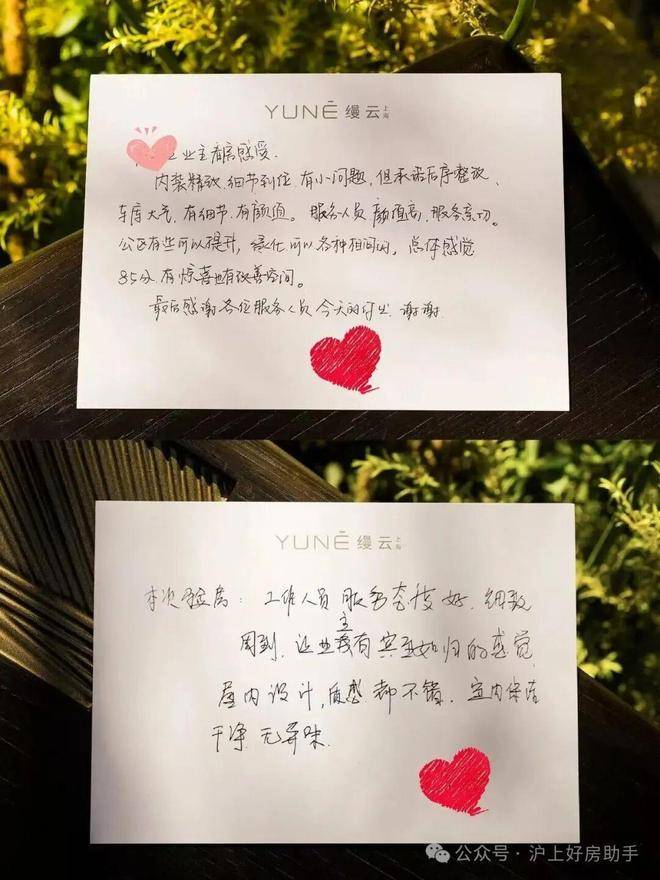 YUNÉ 缦云 上海
业主看房感受.
内装精致.细节到位.有小问题,但承诺后序整改、
车库大气,有细节.有颜值。服务人员颜值高,服务亲切.
公区有些可以提升,绿化可以各种相间的,总体感觉
85分有惊喜也有改善空间。
最后感谢各位服务人员今天的付出.谢谢
YUNÉ 缦云 上海
本次验房:工作人员服务态度好.细致
周到.让业主我有宾至如归的感觉
屋内设计,质感都不错.室内保洁
干净.无异味.
公众号·沪上好房助手